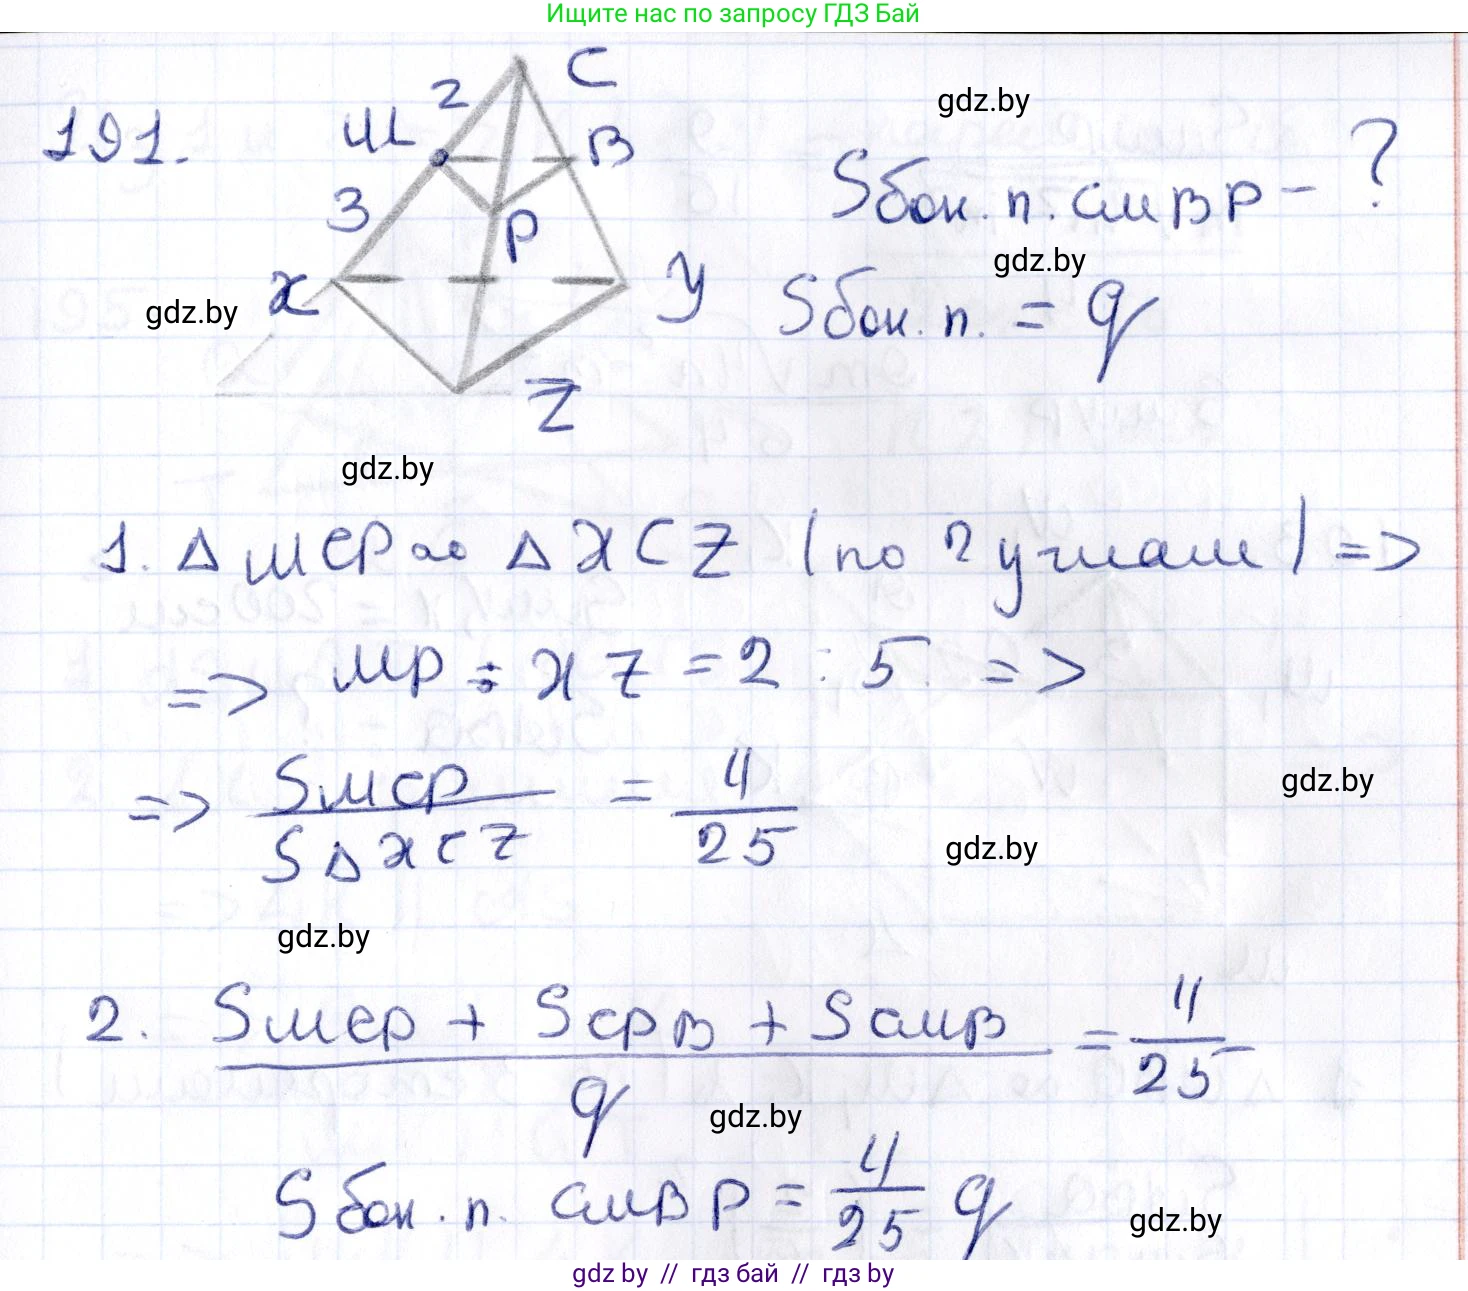 Ищите нас по запросу ГДЗ Бай
191.
C
2
M
B
3
P
X
У
Z
gdz.by
Sбок. п. CMBP - ?
gdz.by
gdz.by
Sбок. п. = q
gdz.by
1. Δ MCP ∾ Δ XCZ (по 2 углам) =>
=> MP : XZ = 2 : 5 =>
=> SMCP / SΔXCZ = 4 / 25
gdz.by
gdz.by
gdz.by
2. (SMCP + SCPB + SCMB) / q = 4 / 25
gdz.by
Sбок. п. CMBP = 4 / 25 q
gdz.by
gdz by // гдз бай // гдз by